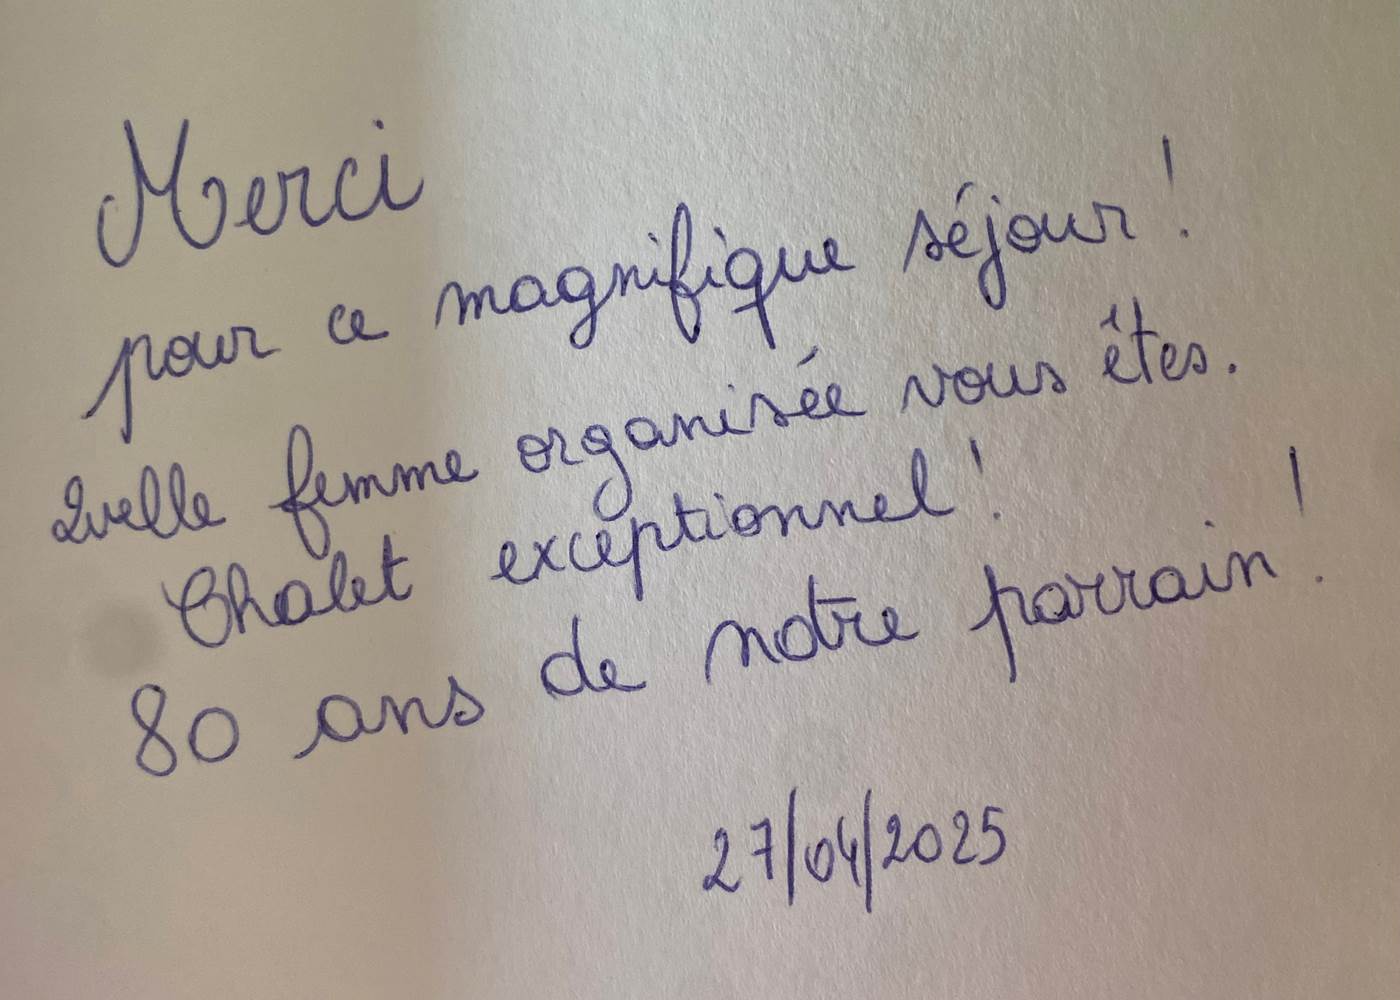 Merci
pour ce magnifique séjour !
Quelle femme organisée vous êtes.
Chalet exceptionnel !
80 ans de notre parrain !
27/04/2025